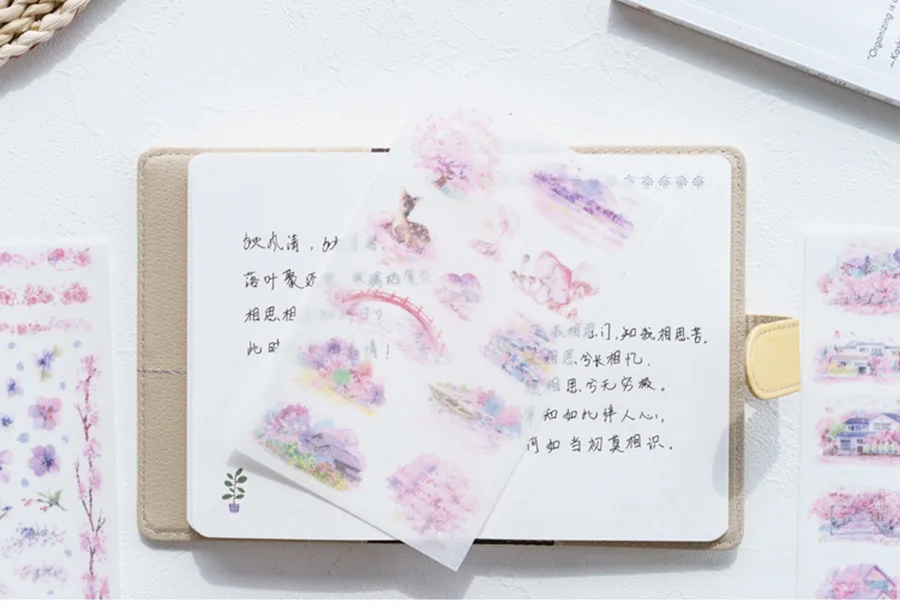 "Organizing is
—Kash
秋风清，秋
落叶聚还
相思相 日？
此时 情！
我相思门，知我相思苦。
相思兮长相忆，
相思兮无穷极。
知如此绊人心，
何如当初莫相识。